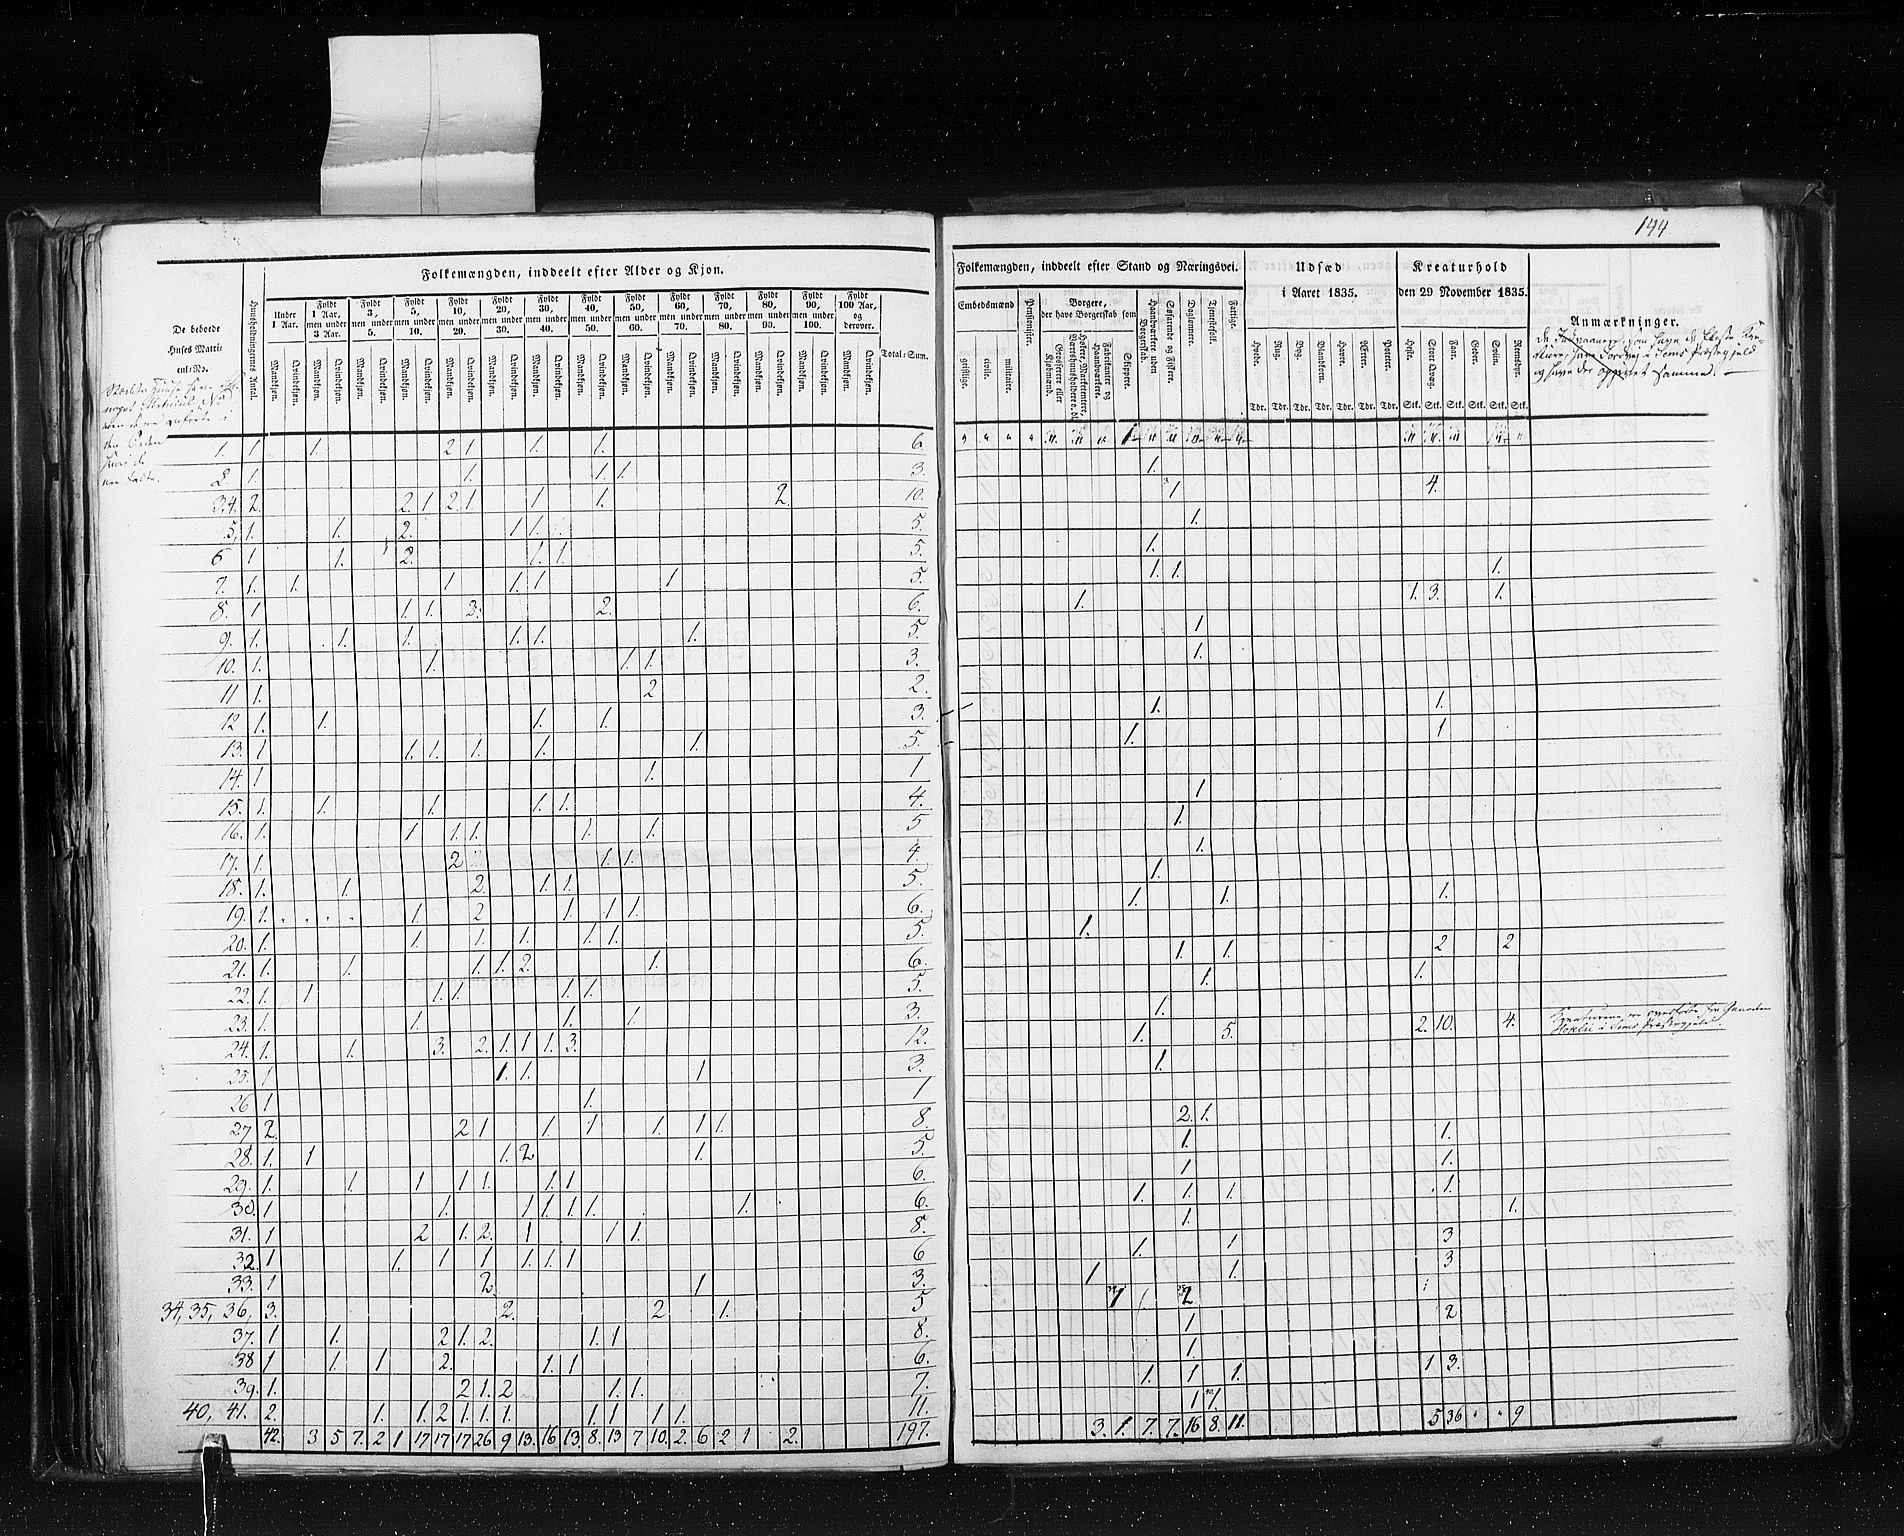 144.
Folkemængden, inddeelt efter Alder og Kjøn.
De beboede Huses Matricul-No.
Huusholdningernes Antal.
Under 1 Aar.
Fyldt 1 Aar, men under 3 Aar.
Fyldt 3, men under 5.
Fyldt 5, men under 10.
Fyldt 10, men under 20.
Fyldt 20, men under 30.
Fyldt 30, men under 40.
Fyldt 40, men under 50.
Fyldt 50, men under 60.
Fyldt 60 men under 70.
Fyldt 70, men under 80.
Fyldt 80, men under 90.
Fyldt 90, men under 100.
Fyldt 100 Aar, og derover.
Mandkjøn. Qvindekjøn.
Total-Sum.
1. 1 1. 2 1 1. 1. 6.
2. 1. 1. 1. 1. 3.
3.4. 2. 2. 1 2 1. 1 1. 2. 10.
5, 1. 1. 2. 1 1. 5.
6 1 1. 2. 1. 1. 5.
7. 1. 1. 1 1. 1 1. 5.
8. 1 1. 1. 2. 2. 6.
9. 1. 1. 1. 1. 1. 1. 5.
10. 1. 1. 1. 1. 3.
11 1. 2 2.
12 1. 1. 1. 1. 3.
13. 1 1. 1. 1. 1. 1. 5.
14. 1 1. 1
15. 1. 1. 1. 1. 1. 4.
16. 1. 1 1. 1. 1. 1. 5
17. 1. 2 1. 1. 4.
18. 1. 1. 2. 1. 1. 5.
19. 1. 1. 2 1. 1 1. 6.
20. 1. 1. 1. 1. 1. 1. 5.
21. 1. 1. 1. 1. 2. 1. 6.
22. 1. 1 1. 1. 1. 1. 5.
23. 1. 1. 1. 1. 3.
24. 1. 1. 3. 2. 1. 1 1. 3. 12.
25. 1 1. 1. 1 3.
26 1 1. 1
27 2. 2 1 1. 1 1. 1 1. 8.
28. 1. 1 1. 2 1. 5.
29. 1. 1. 1 1. 1. 1. 1 6.
30. 1 1. 1 1. 1. 1. 1. 6.
31. 1 2 1. 2. 1 1 1. 8.
32. 1 1. 1 1 1. 1. 1 6
33. 1 2. 1 3.
34, 35, 36, 3. 2. 2 1. 5
37. 1 1. 2 1. 2. 1. 1 8.
38 1 1. 1 2. 1. 1 6.
39. 1. 2 1. 2 1. 1. 7.
40, 41. 2. 1. 1. 2 1. 1. 1. 1 1 1 1. 11.
42. 3 5 7. 2 1 17 17 17 26 9 13. 16 13. 8. 13 7 10. 2. 6 2 1 2. 197.
Folkemængden, inddeelt efter Stand og Næringsvei.
Embedsmænd
geistlige. civile. militaire.
Pensionister.
Borgere, der have Borgerskab som
Grosserere eller Kjøbmænd.
Høkere, Marketentere, Værtshuusholdere o. dl.
Fabrikanter og Haandværkere.
Skippere.
Haandværkere uden Borgerskab.
Søfarende og Fiskere.
Daglønnere.
Tjenestefolk.
Fattige.
Udsæd i Aaret 1835.
Hvede. Rug. Byg. Blankorn. Havre. Ærter. Poteter.
Tdr. Tdr. Tdr. Tdr. Tdr. Tdr. Tdr.
Kreaturhold den 29 November 1835.
Heste. Stort Qvæg. Faar. Geder. Sviin. Rensdyr.
Stk. Stk. Stk. Stk. Stk. Stk.
Anmærkninger.
1
1.
1 4.
1.
1.
1. 1. 1.
1. 1. 3. 1.
1
1.
1. 1.
1. 1
1
1.
1.
1.
1. 1. 1.
1.
1 1. 2 2
1. 1.
1.
1. 5. 2. 10. 4.
1.
2. 1.
1. 1.
1 1.
1. 1. 1. 1.
1. 1.
1. 1 3
1 1. 3
1 2
1 2
1.
1. 1 1. 1 3.
1 1.
3. 1. 7. 7. 16 8. 11. 5 36 9